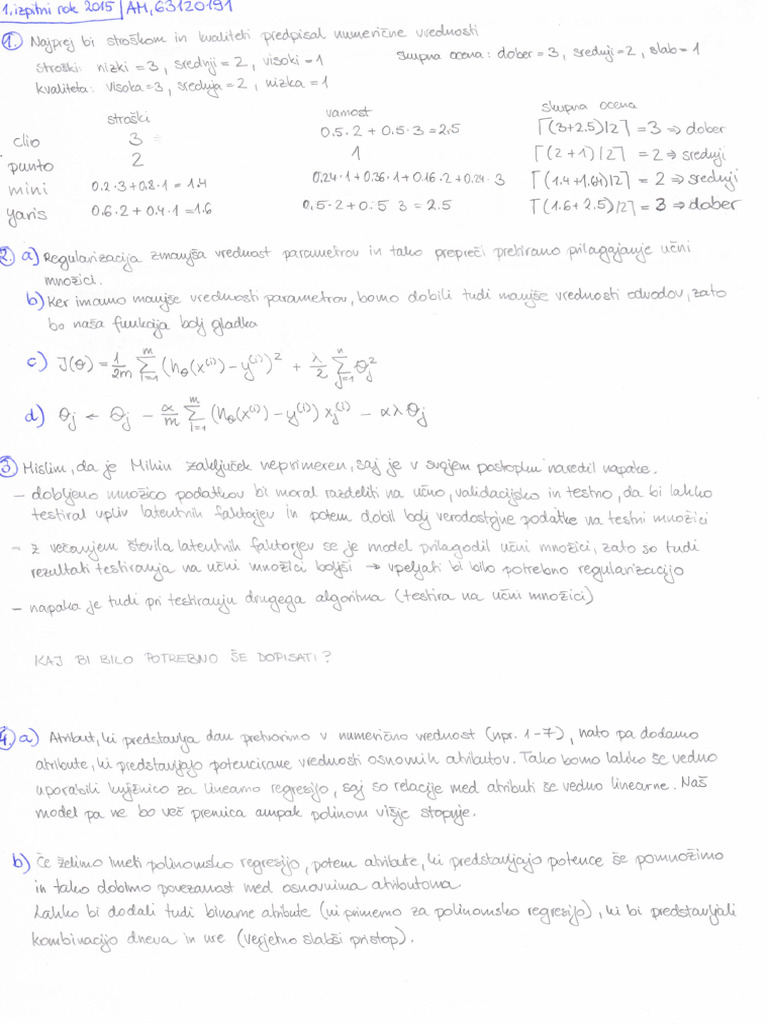 1. izpitni rok 2015 | AM, 63120191
1. Najprej bi stroškom in kvaliteti predpisal numerične vrednosti
skupna ocena: dober = 3, srednji = 2, slab = 1
stroški: nizki = 3, srednji = 2, visoki = 1
kvaliteta: visoka = 3, srednja = 2, nizka = 1
stroški varnost skupna ocena
clio 3 0.5·2 + 0.5·3 = 2.5 ⌈(3+2.5)/2⌉ = 3 ⇒ dober
punto 2 1 ⌈(2+1)/2⌉ = 2 ⇒ srednji
mini 0.2·3+0.8·1 = 1.4 0.24·1 + 0.36·1 + 0.16·2 + 0.24·3 ⌈(1.4+1.64)/2⌉ = 2 ⇒ srednji
yaris 0.6·2 + 0.4·1 = 1.6 0.5·2 + 0.5·3 = 2.5 ⌈(1.6+2.5)/2⌉ = 3 ⇒ dober
2. a) Regularizacija zmanjša vrednost parametrov in tako prepreči pretirano prilagajanje učni
množici.
b) Ker imamo manjše vrednosti parametrov, bomo dobili tudi manjše vrednosti odvodov, zato
bo naša funkcija bolj gladka
c) J(θ) = 1/2m ∑_{i=1}^{m} (h_θ(x^(i)) − y^(i))² + λ/2 ∑_{j=1}^{n} θ_j²
d) θ_j ← θ_j − α/m ∑_{i=1}^{m} (h_θ(x^(i)) − y^(i)) x_j^(i) − αλθ_j
3 Mislim, da je Mihin zaključek neprimeren, saj je v svojem postopku naredil napake.
− dobljeno množico podatkov bi moral razdeliti na učno, validacijsko in testno, da bi lahko
testiral vpliv latentnih faktorjev in potem dobil bolj verodostojne podatke na testni množici
− z večanjem števila latentnih faktorjev se je model prilagodil učni množici, zato so tudi
rezultati testiranja na učni množici boljši → vpeljati bi bilo potrebno regularizacijo
− napaka je tudi pri testiranju drugega algoritma (testira na učni množici)
KAJ BI BILO POTREBNO ŠE DOPISATI?
4. a) Atribut, ki predstavlja dan pretvorimo v numerično vrednost (npr. 1-7), nato pa dodamo
atribute, ki predstavljajo potencirane vrednosti osnovnih atributov. Tako bomo lahko še vedno
uporabili knjižnico za linearno regresijo, saj so relacije med atributi še vedno linearne. Naš
model pa ne bo več premica ampak polinom višje stopnje.
b) Če želimo imeti polinomsko regresijo, potem atribute, ki predstavljajo potence še pomnožimo
in tako dobimo povezanost med osnovnima atributoma.
Lahko bi dodali tudi binarne atribute (ni primerno za polinomsko regresijo), ki bi predstavljali
kombinacijo dneva in ure (verjetno slabši pristop).